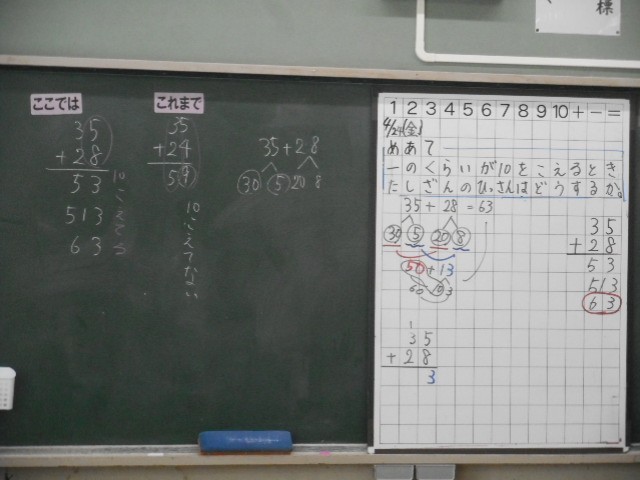 様
ここでは
35
+28
53
513
63
10こえてる
これまで
35
+24
59
10こえてない
35+28
30 5 20 8
1 2 3 4 5 6 7 8 9 10 + − =
4/24(金)
めあて
一のくらいが10をこえるとき
たしざんのひっさんはどうするか。
35 + 28 = 63
30 5 20 8
50 + 13
60 10 3
35
+ 28
53
513
63
1
35
+ 28
3